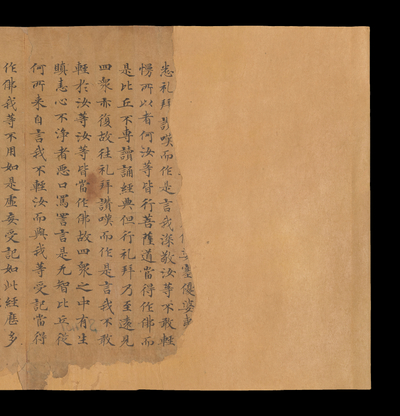 塞優婆夷
悉礼拜讃嘆而作是言我深敬汝等不敢輕
慢所以者何汝等皆行菩薩道當得作佛而
是比丘不專讀誦經典但行礼拜乃至遠見
四衆亦復故往礼拜讃嘆而作是言我不敢
輕於汝等汝等皆當作佛故四衆之中有生
瞋恚心不淨者惡口罵詈言是无智比丘從
何所来自言我不輕汝而與我等受記當得
作佛我等不用如是虛妄受記如此經歷多